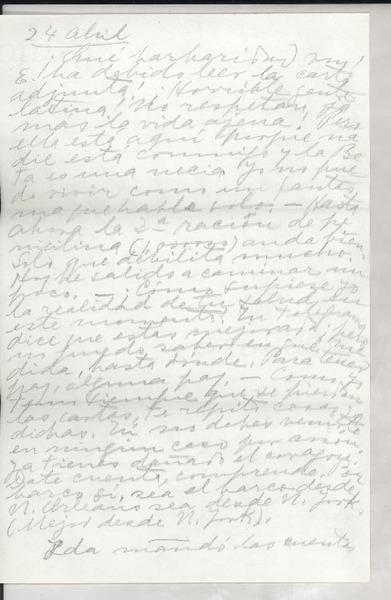 24 Abril
¡Qué barbaridad, my!
E. ha debido leer la carta
adjunta! ¡Horrible gente
latina! ¡No respetan ja
más la vida ajena! Pero
ella está aquí porque na
die está conmigo y la Be
ta es una necia. Yo no pue
do vivir como un
que habla solo. — Hasta
ahora la 2ª ración de pe
nicilina anda bien
sólo que debilita mucho.
Hoy he salido a caminar un
poco. — ¡Cómo supiese yo
la realidad de tu salud en
este momento! Tu telegrama
dice que estás mejorada, pero
no puedo saber en qué me
dida, hasta dónde. Para tener
paz, alguna paz. — Como
tiempo que se pierdan
las cartas, te repito cosas ya
dichas. Tú no debes venir
en ningún caso por avión.
Ya tienes dañado el corazón.
Date cuenta, comprende. Por
barco sí, sea el barco desde
N. Orleans sea desde N. York.
(Mejor desde N. York).
Eda mandó las cuentas